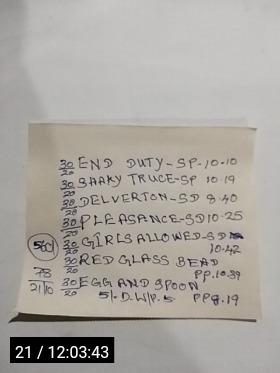 30/20 END DUTY-SP-10-10
30/20 SHAKY TRUCE-SP 10-19
30/20 DELVERTON-SD 8-40
30/20 PLEASANCE-SD 10-25
56d 30/20 GIRLS ALLOWED-SD
10-42
78 30/20 RED GLASS BEAD
PP.10-39
21/10 30/20 EGG AND SPOON
5/-D.W/P.5 PP8.19
21 / 12:03:43